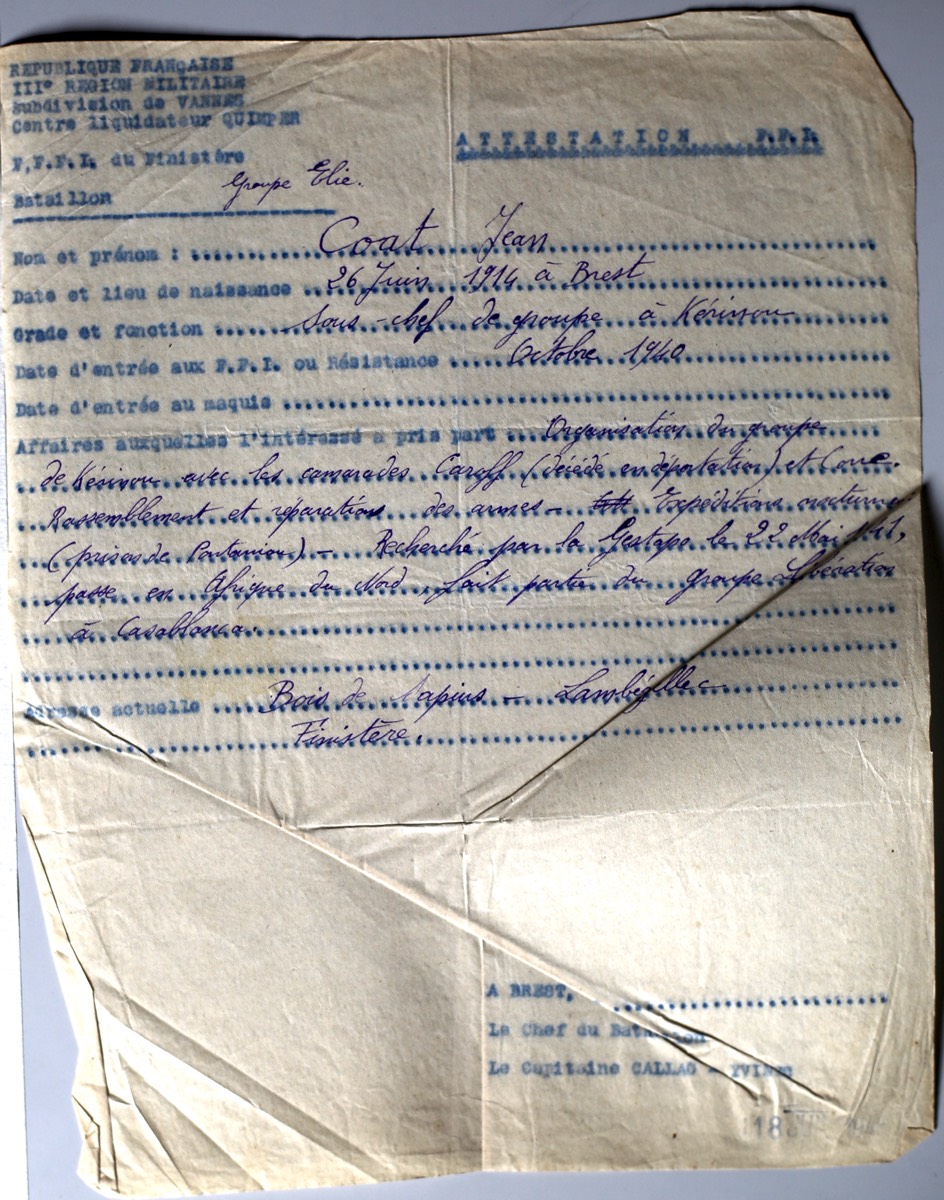 REPUBLIQUE FRANÇAISE
III° REGION MILITAIRE
Subdivision de VANNES
Centre liquidateur QUIMPER
ATTESTATION F.F.I.
F.F.F.I. du Finistère
Bataillon Groupe Elie.
Nom et prénom : Coat Jean
Date et lieu de naissance 26 Juin 1914 à Brest
Grade et fonction Sous-chef de groupe à Kérinou
Date d'entrée aux F.F.I. ou Résistance Octobre 1940
Date d'entrée au maquis
Affaires auxquelles l'intéressé a pris part Organisation du groupe
de Kérinou avec les camarades Caroff (décédé en déportation) et
Rassemblement et réparations des armes - Expéditions nocturnes
(prison de Pontaniou) - Recherché par la Gestapo le 22 Mai 1941,
passe en Afrique du Nord, fait partie du groupe Libération
à Casablanca.
Adresse actuelle Bois de Sapins - Lambézellec
Finistère.
A BREST,
Le Chef du Bataillon
Le Capitaine CALLAC - YVINEC
18